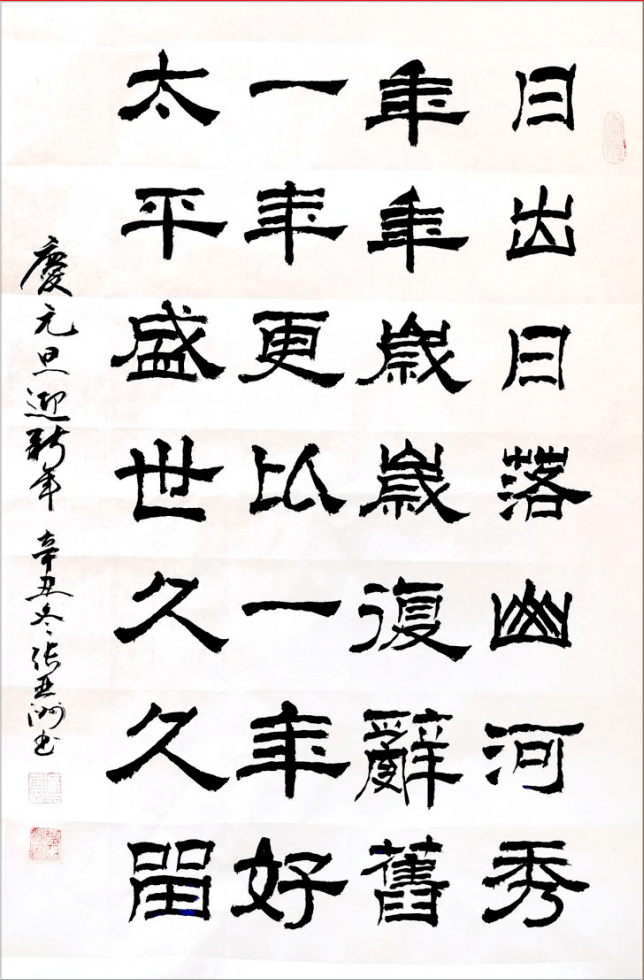 日出日落幽河秀
年年歲歲復辭舊
一年更比一年好
太平盛世久久留
慶元旦迎新年 辛丑冬张亚洲书